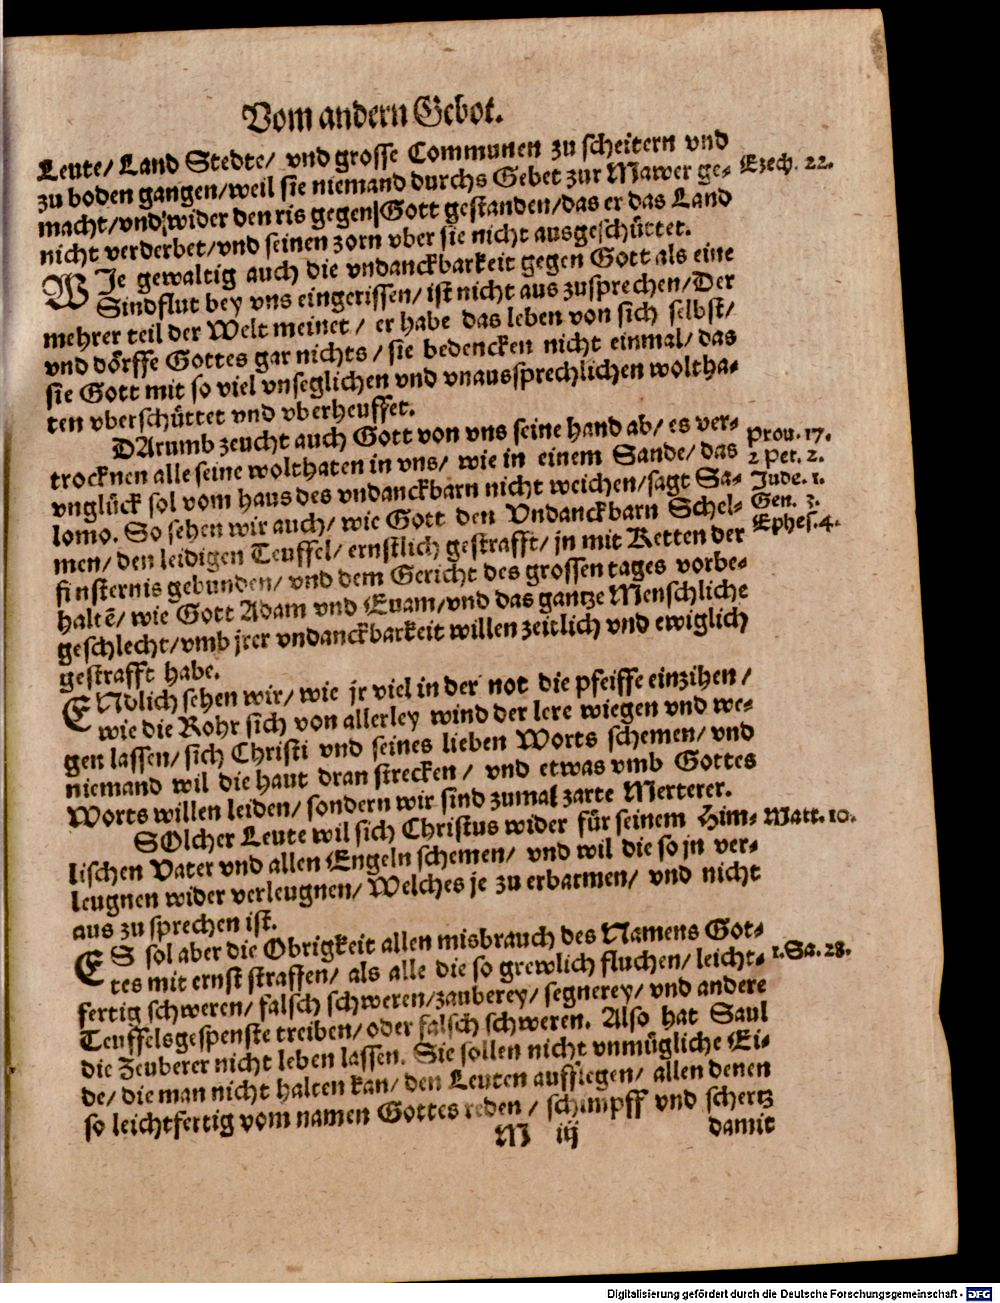 Vom andern Gebot.
Leute/ Land Stedte/ vnd grosse Communen zu scheitern vnd
zu boden gangen/ weil sie niemand durchs Gebet zur Mawer ge- Ezech. 22.
macht/ vnd wider den ris gegen Gott gestanden/ das er das Land
nicht verderbet/ vnd seinen zorn vber sie nicht ausgeschüttet.
WIe gewaltig auch die vndanckbarkeit gegen Gott als eine
Sindflut bey vns eingerissen/ ist nicht aus zusprechen/ Der
mehrer teil der Welt meinet/ er habe das leben von sich selbst/
vnd dörffe Gottes gar nichts/ sie bedencken nicht einmal/ das
sie Gott mit so viel vnseglichen vnd vnaussprechlichen woltha-
ten vberschüttet vnd vberheuffet.
DArumb zeucht auch Gott von vns seine hand ab/ es ver- Prou. 17.
trocknen alle seine wolthaten in vns/ wie in einem Sande/ das 2 Pet. 2.
vnglück sol vom haus des vndanckbarn nicht weichen/ sagt Sa- Jude. 1.
lomo. So sehen wir auch/ wie Gott den Vndanckbarn Schel- Gen. 3.
men/ den leidigen Teuffel/ ernstlich gestrafft/ jn mit Ketten der Ephes. 4.
finsternis gebunden/ vnd dem Gericht des grossen tages vorbe-
haltē/ wie Gott Adam vnd Euam/ vnd das gantze Menschliche
geschlecht/ vmb jrer vndanckbarkeit willen zeitlich vnd ewiglich
gestrafft habe.
ENdlich sehen wir/ wie jr viel in der not die pfeiffe einzihen/
wie die Rohr sich von allerley wind der lere wiegen vnd we-
gen lassen/ sich Christi vnd seines lieben Worts schemen/ vnd
niemand wil die haut dran strecken/ vnd etwas vmb Gottes
Worts willen leiden/ sondern wir sind zumal zarte Merterer.
SOlcher Leute wil sich Christus wider für seinem Him- Matt. 10.
lischen Vater vnd allen Engeln schemen/ vnd wil die so jn ver-
leugnen wider verleugnen/ Welches je zu erbarmen/ vnd nicht
aus zu sprechen ist.
ES sol aber die Obrigkeit allen misbrauch des Namens Got-
tes mit ernst straffen/ als alle die so grewlich fluchen/ leicht- 1. Sa. 28.
fertig schweren/ falsch schweren/ zauberey/ segnerey/ vnd andere
Teuffelsgespenste treiben/ oder falsch schweren. Also hat Saul
die Zeuberer nicht leben lassen. Sie sollen nicht vnmügliche Ei-
de/ die man nicht halten kan/ den Leuten aufflegen/ allen denen
so leichtfertig vom namen Gottes reden/ schimpff vnd schertz
M iij damit
Digitalisierung gefördert durch die Deutsche Forschungsgemeinschaft - DFG